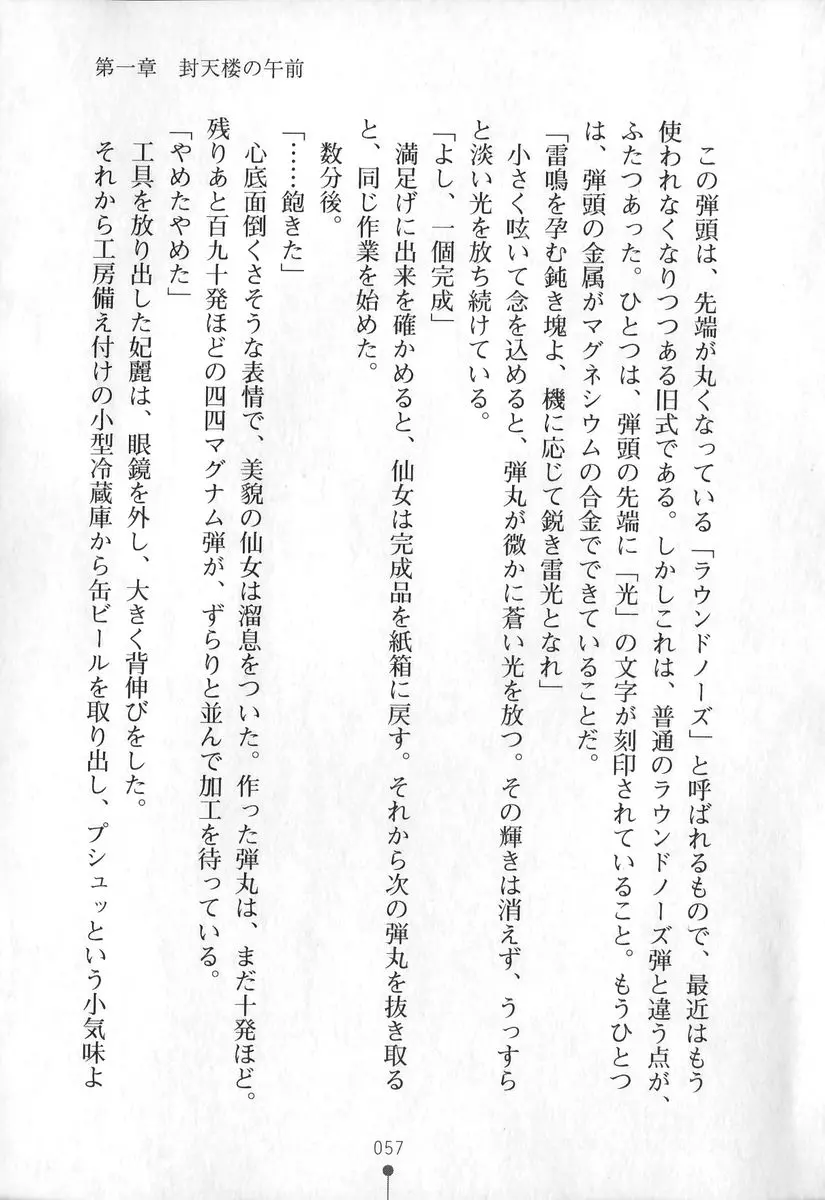 第一章　封天楼の午前
この弾頭は、先端が丸くなっている「ラウンドノーズ」と呼ばれるもので、最近はもう
使われなくなりつつある旧式である。しかしこれは、普通のラウンドノーズ弾と違う点が、
ふたつあった。ひとつは、弾頭の先端に「光」の文字が刻印されていること。もうひとつ
は、弾頭の金属がマグネシウムの合金でできていることだ。
「雷鳴を孕む鈍き塊よ、機に応じて鋭き雷光となれ」
小さく呟いて念を込めると、弾丸が微かに蒼い光を放つ。その輝きは消えず、うっすら
と淡い光を放ち続けている。
「よし、一個完成」
満足げに出来を確かめると、仙女は完成品を紙箱に戻す。それから次の弾丸を抜き取る
と、同じ作業を始めた。
数分後。
「……飽きた」
心底面倒くさそうな表情で、美貌の仙女は溜息をついた。作った弾丸は、まだ十発ほど。
残りあと百九十発ほどの四四マグナム弾が、ずらりと並んで加工を待っている。
「やめたやめた」
工具を放り出した妃麗は、眼鏡を外し、大きく背伸びをした。
それから工房備え付けの小型冷蔵庫から缶ビールを取り出し、プシュッという小気味よ
057